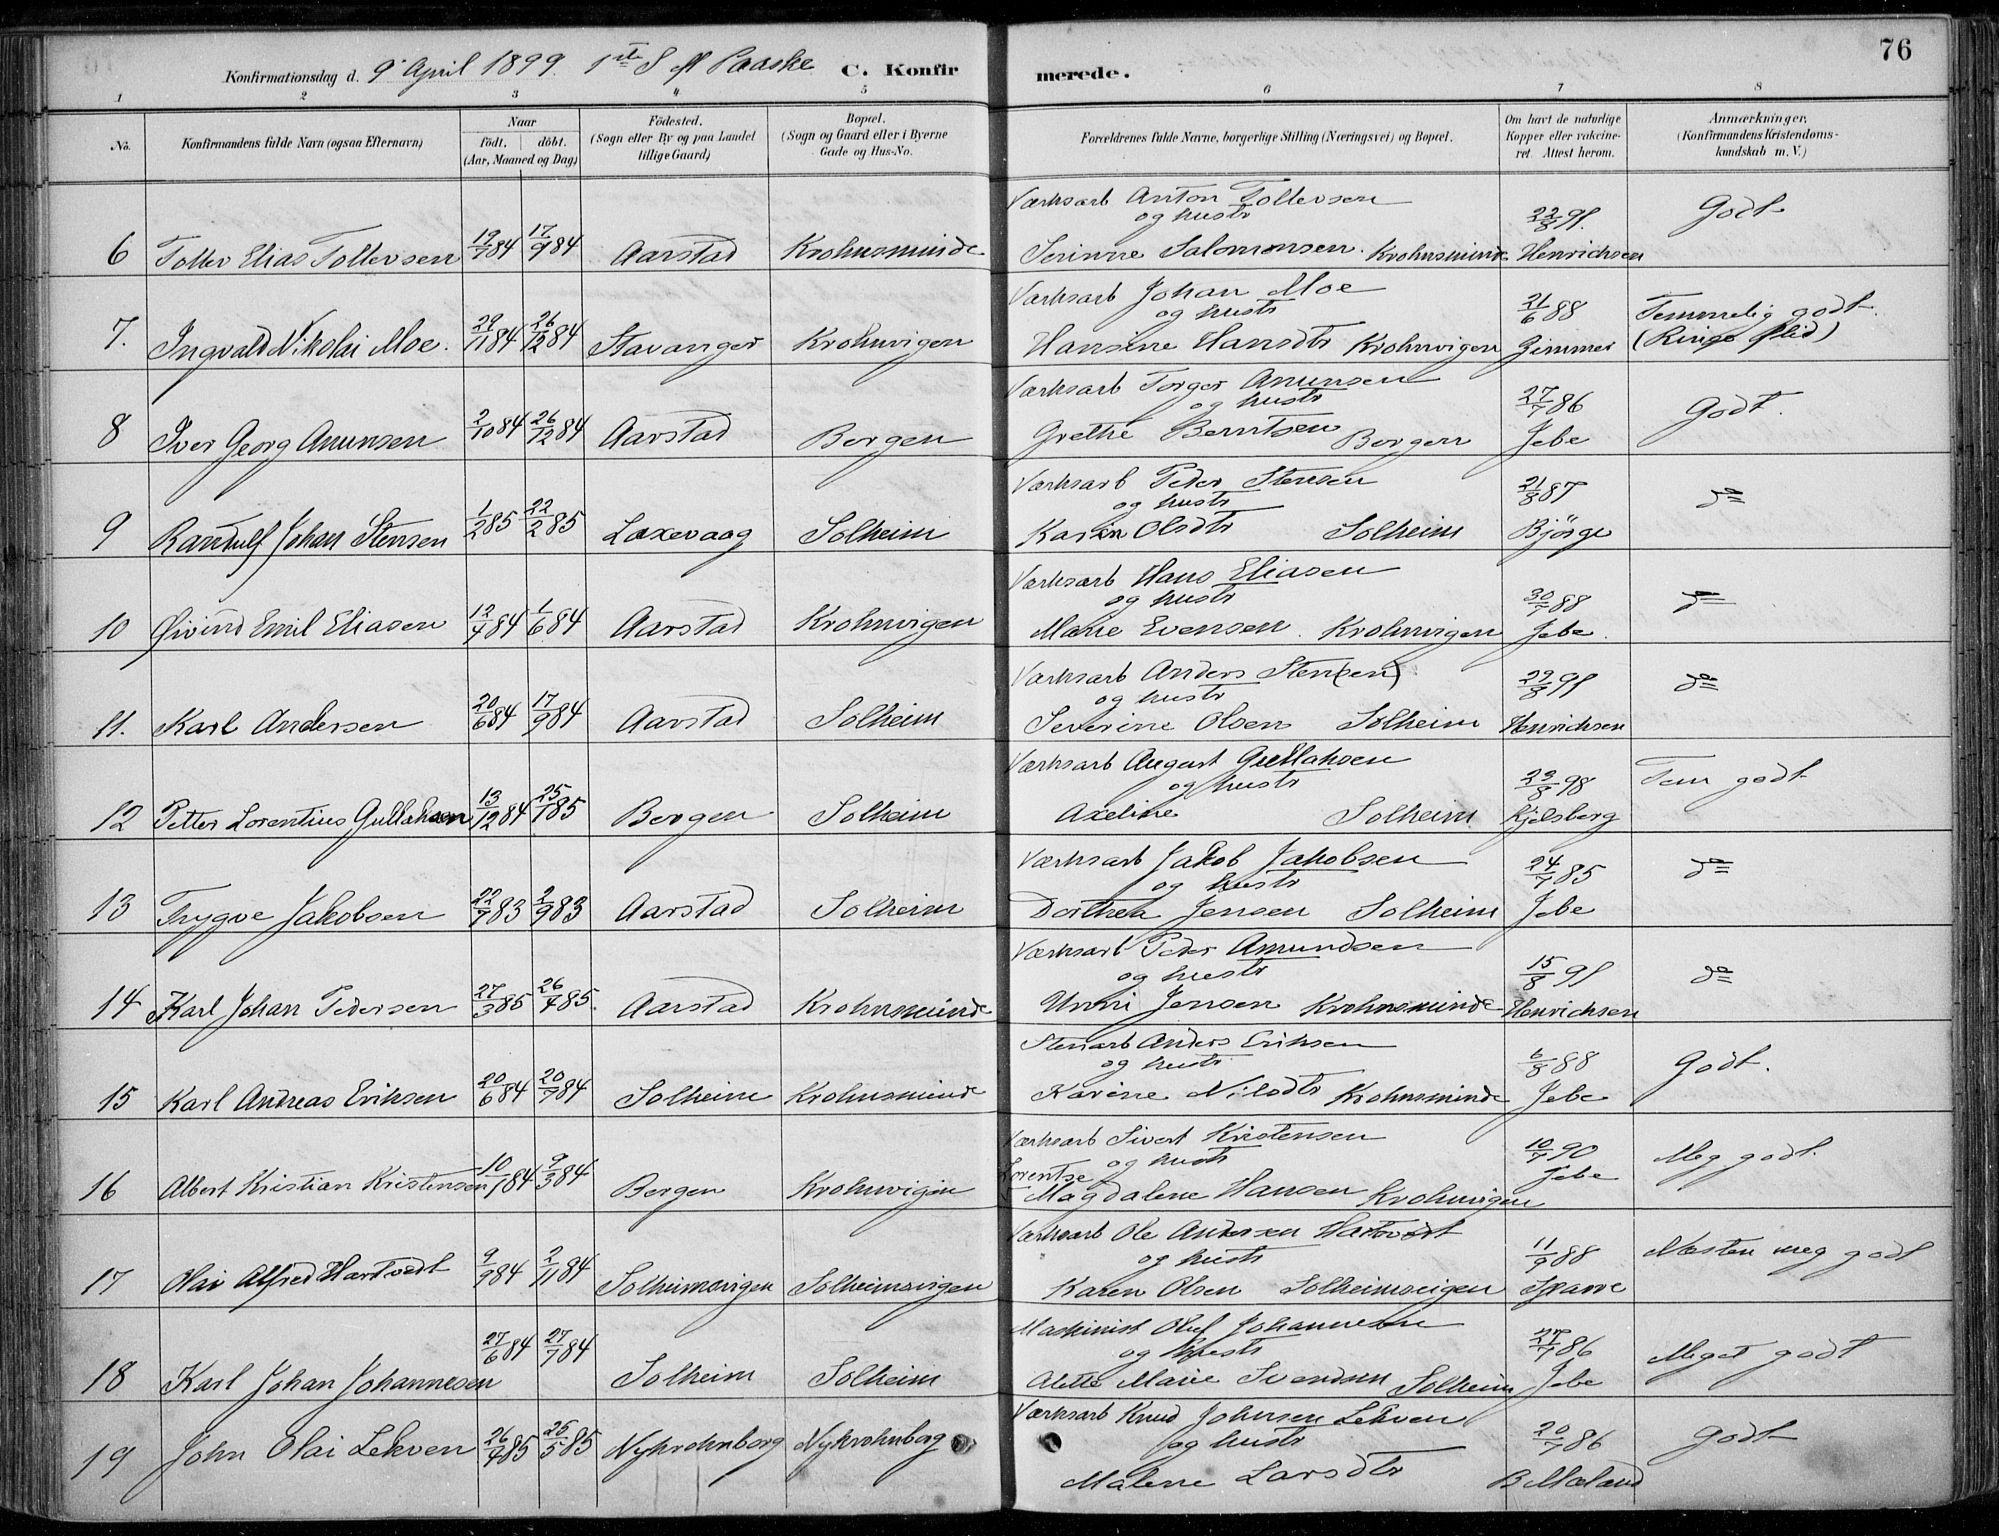 76
Konfirmationsdag d. 9 April 1899. 1ste S eft Paaske C. Konfirmerede.
1 2 3 4 5 6 7 8
No. Konfirmandens fulde Navn (ogsaa Efternavn) Naar födt. döbt. (Aar, Maaned og Dag) Födested. (Sogn eller By og paa Landet tillige Gaard) Bopæl. (Sogn og Gaard eller i Byerne Gade og Hus-No. Forældrenes fulde Navne, borgerlige Stilling (Næringsvei) og Bopæl. Om havt de naturlige Kopper eller vakcineret Attest herom. Anmærkninger, (Konfirmandens Kristendomskundskab m. V.)
Værksarb Anton Tollevsen
og hustr 22/8 91. Godt
6 Tollev Elias Tollevsen 19/7 84 17/9 84 Aarstad Krohnsminde Serinne Salomonsen. Krohnsminde Henrichsen
Værksarb Johan Moe
og hustr 21/6 88 Temmelig godt.
7. Ingvald Nikolai Moe. 29/11 84 26/12 84 Stavanger Krohnvigen Hansine Hansdtr Krohnvigen Zimmer (Ringe flid)
Værksarb Torger Amunsen
og hustr 27/7 86 Godt.
8 Iver Georg Amunsen 2/10 84 26/12 84 Aarstad Bergen Grethe Berntsen Bergen Jebe
Værksarb Peder Stensen
og hustr 21/8 87 do
9 Randulf Johan Stensen 1/2 85 22/2 85 Laxevaag Solheim Karin Olsdtr Solheim Bjørge
Værksarb Hans Eliasen
og hustr 30/7 88 do
10 Øivind Emil Eliasen 12/4 84 1/6 84 Aarstad Krohnvigen Marie Evensen. Krohnvigen Jebe.
Værksarb Anders Sten(sen)
og hustr 22/8 91 do
11. Karl Andersen 20/6 84 17/9 84 Aarstad Solheim Severine Olsen Solheim Henrichsen
Værksarb August Gullaksen
og hustr 29/8 98 Tem godt
12 Petter Lorentius Gullaksen 13/12 84 25/1 85 Bergen Solheim Axeline Solheim Kjelsberg
Værksarb Jakob Jakobsen
og hustr 24/7 85 do
13 Trygve Jakobsen 22/7 83 2/9 83 Aarstad Solheim Dorthea Jensen Solheim Jebe
Værksarb Peder Amundsen
og hustr 15/8 91 do
14 Karl Johan Pedersen 27/3 85 26/4 85. Aarstad Krohnsminde Unni Jensen Krohnsminde Henrichsen
Stenarb Anders Eriksen
og hustr 6/8 88 Godt.
15 Karl Andreas Eriksen 20/6 84 20/7 84 Solheim Krohnsminde Karine Nilsdtr Krohnsminde Jebe
Værksarb Sivert Kristensen
og hustr 10/7 90 Meg godt.
Lorentse Jebe
16 Albert Kristian Kristensen 10/1 84 9/3 84 Bergen Krohnvigen Magdalene Hansen Krohnvigen
Værksarb Ole Andersen Hartvedt
og hustr 11/9 88 Næsten meg godt
17 Olai Alfred Hartvedt 9/9 84 2/11 84 Solheimsvigen Solheimsvigen Karen Olsen Solheimsvigen Sparre
Maskinist Oluf Johannesen
og hustr 27/7 86 Meget godt
18 Karl Johan Johannesen 27/6 84 27/7 84 Solheim Solheim Alette Marie Svendsen Solheim Jebe
Værksarb Knud Johnsen Lekven
og hustr 20/7 86 Godt
19 John Olai Lekven 26/4 85 25/5 85 Nykrohnborg Nykrohnborg Malene Larsdtr B Mæland